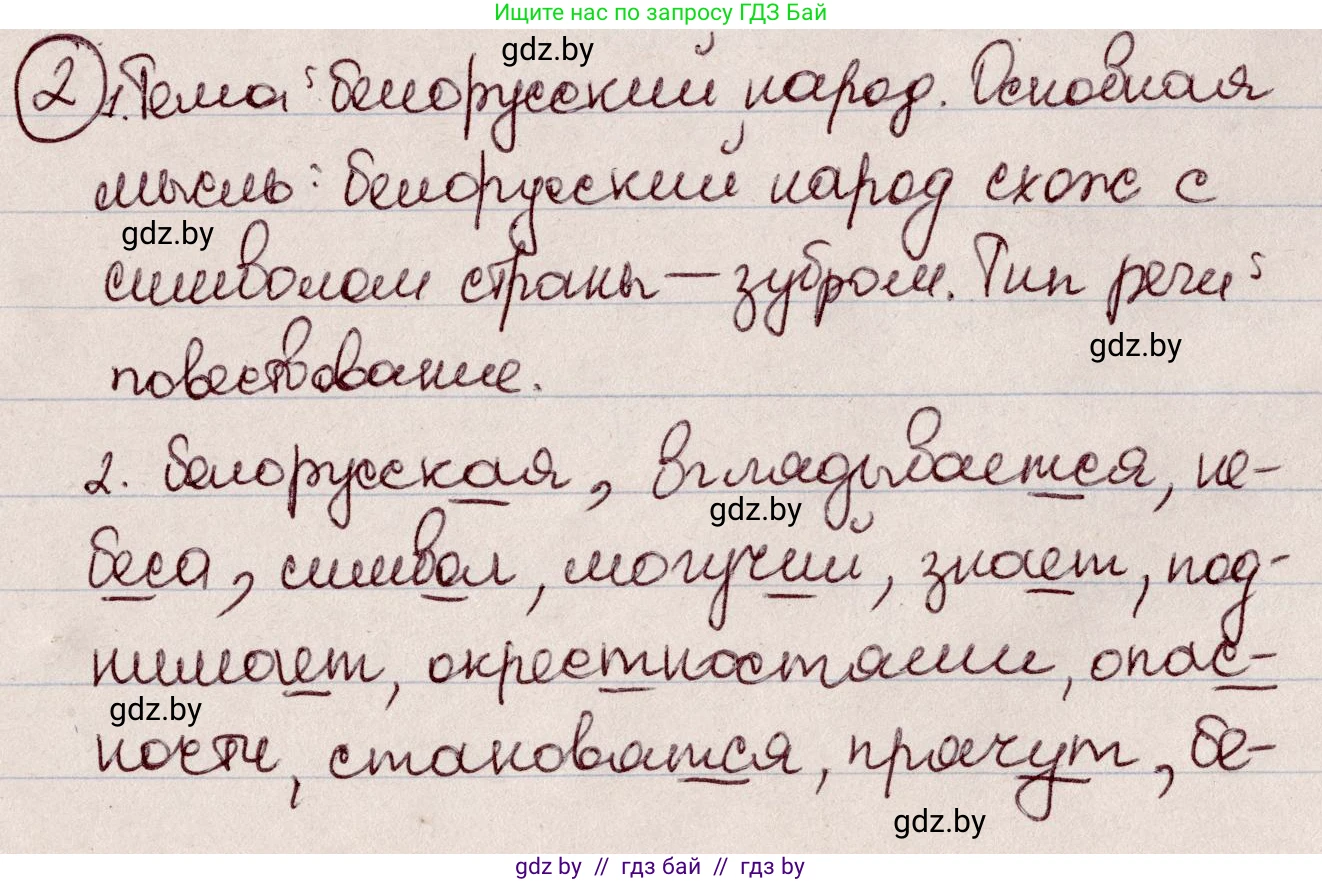 Ищите нас по запросу ГДЗ Бай
gdz.by
2 1. Тема: белорусский народ. Основная
мысль: белорусский народ схож с
gdz.by
символом страны — зубром. Тип речи:
gdz.by
повествование.
2. белорусская, вглядывается, не-
gdz.by
беса, символ, могучий, знает, под-
нимает, окрестностями, опас-
gdz.by
ности, становятся, прячут, бе-
gdz.by
gdz by // гдз бай // gdz by